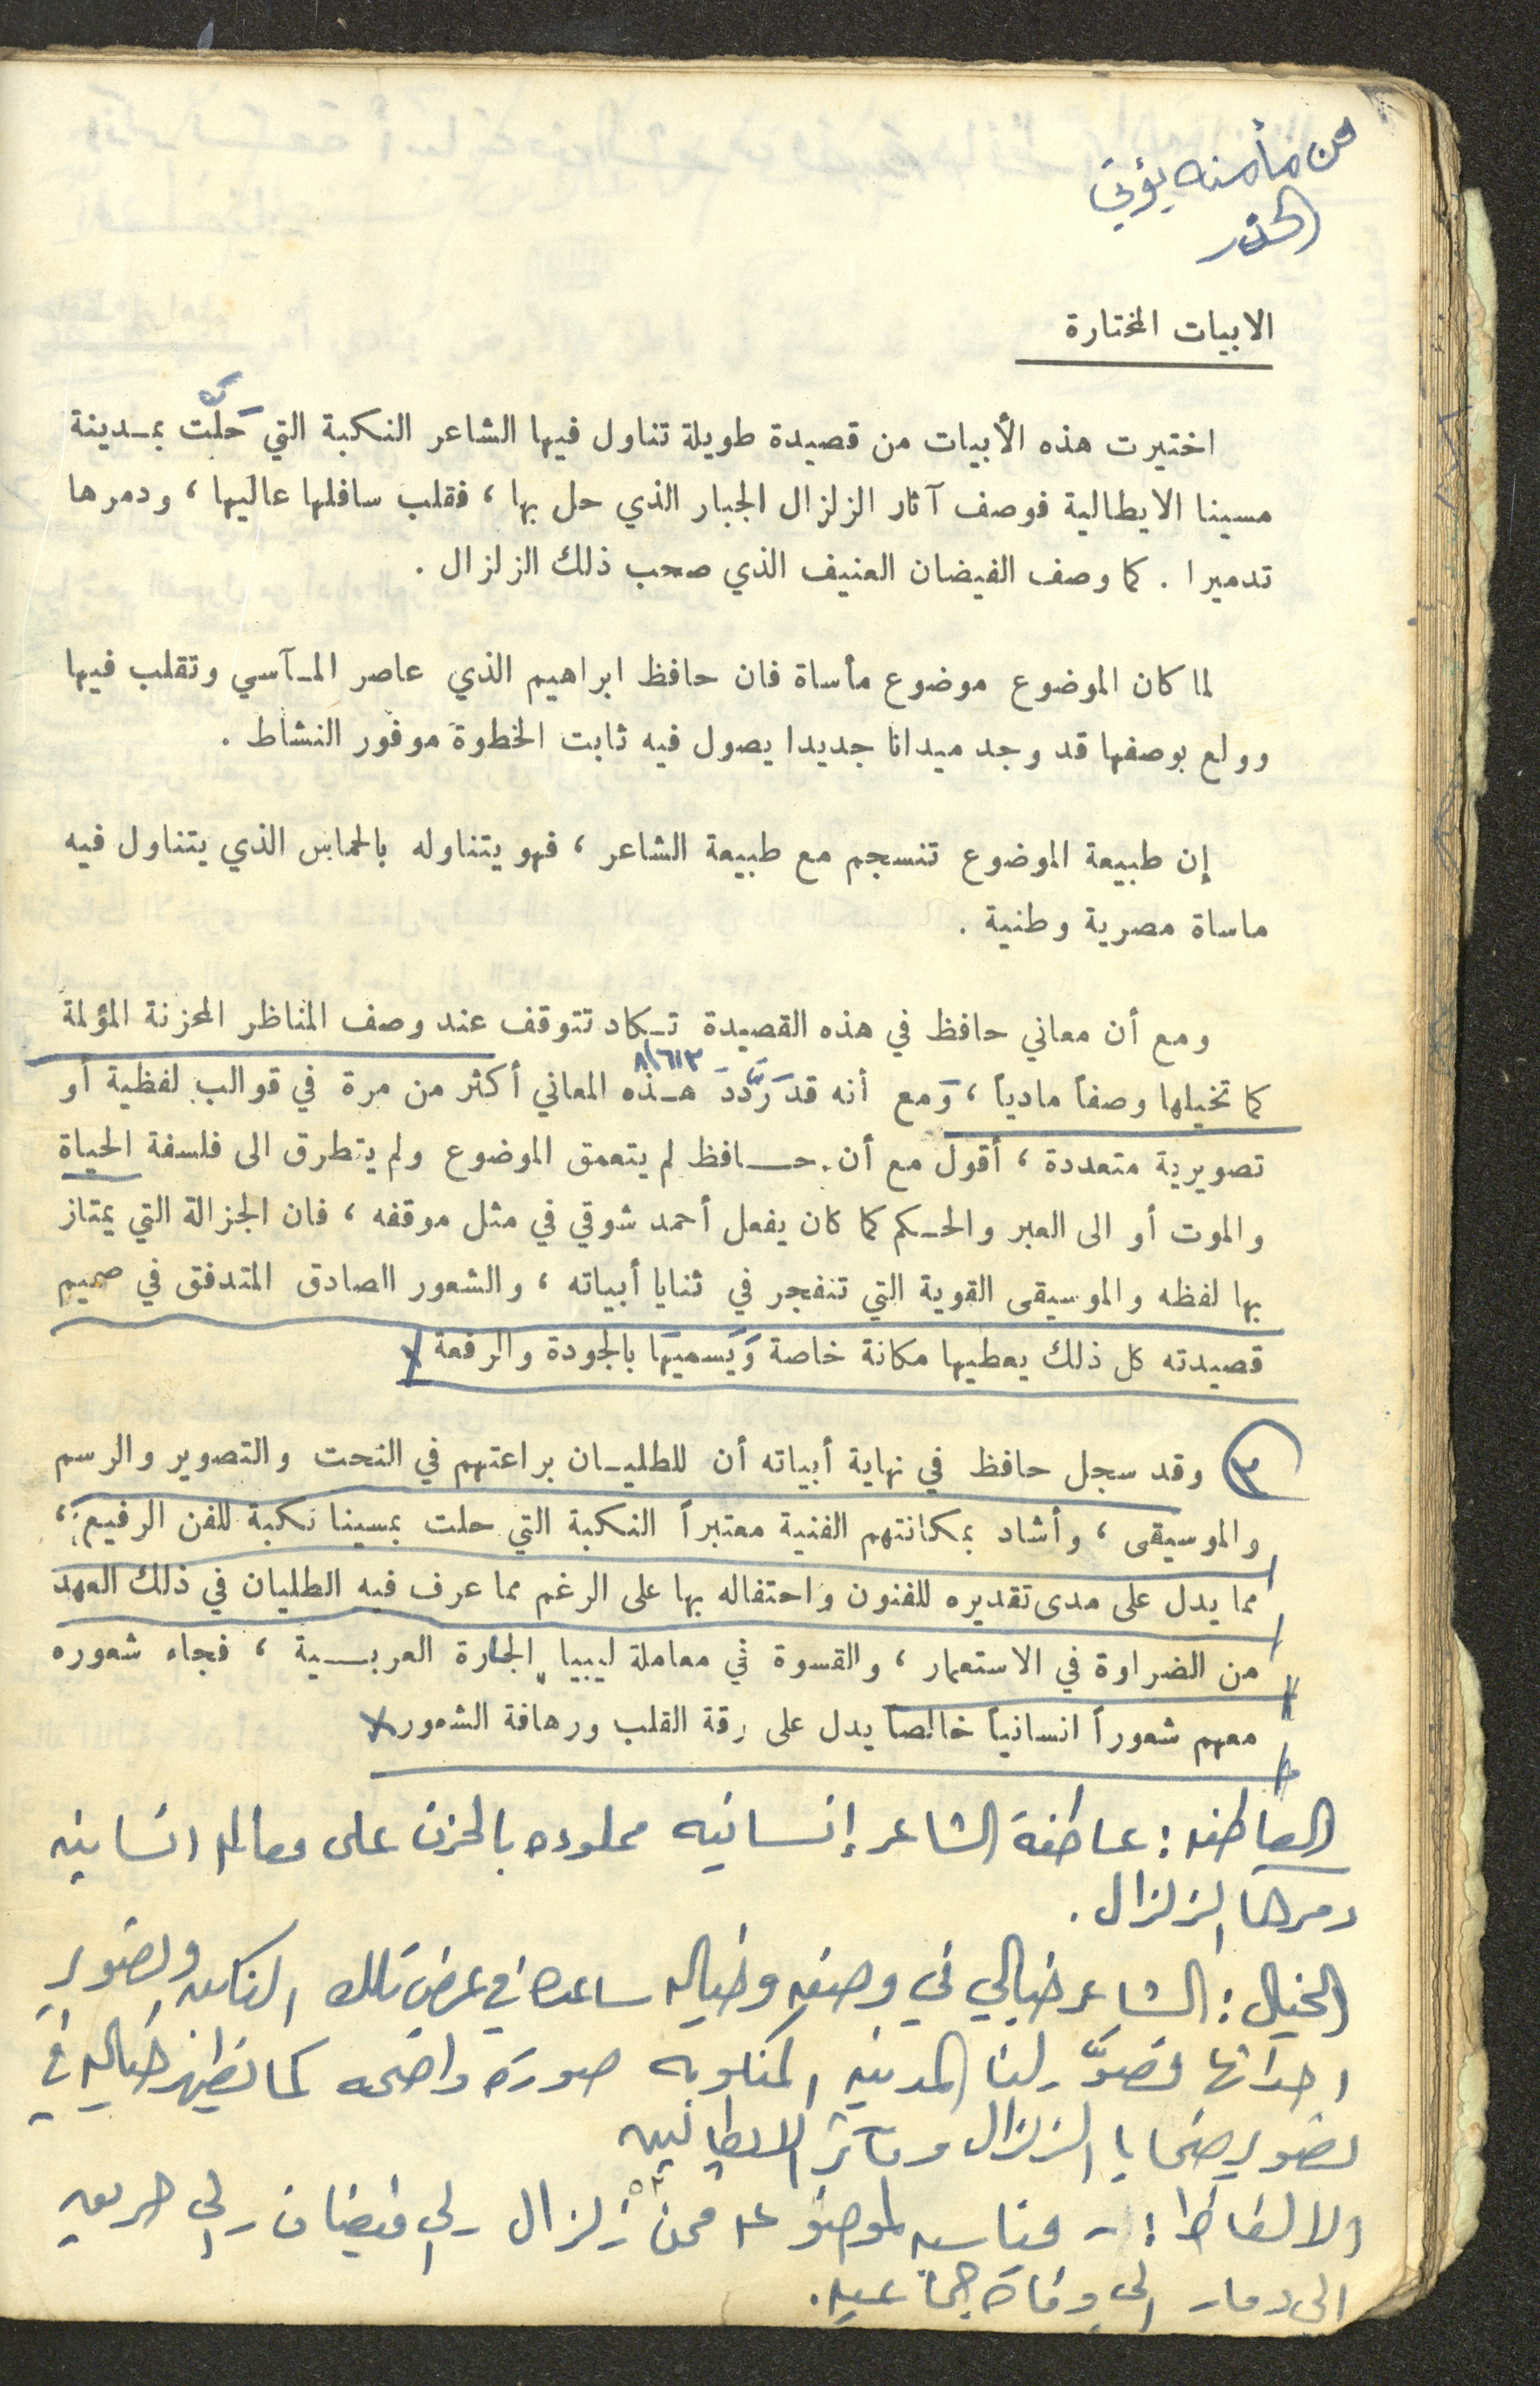 من مأمنه يؤتى
الحذر
الابيات المختارة
اختيرت هذه الأبيات من قصيدة طويلة تناول فيها الشاعر النكبة التي حَلّت بمـدينة
مسينا الايطالية فوصف آثار الزلزال الجبار الذي حل بها ، فقلب سافلها عاليها ، ودمرها
تدميرا . كما وصف الفيضان العنيف الذي صحب ذلك الزلزال .
لما كان الموضوع موضوع مأساة فان حافظ ابراهيم الذي عاصر المـآسي وتقلب فيها
وولع بوصفها قد وجد ميدانا جديدا يصول فيه ثابت الخطوة موفور النشاط .
إن طبيعة الموضوع تنسجم مع طبيعة الشاعر ، فهو يتناوله بالحماس الذي يتناول فيه
ماساة مصرية وطنية .
ومع أن معاني حافظ في هذه القصيدة تـكاد تتوقف عند وصف المناظر المحزنة المؤلمة
كما تخيلها وصفاً مادياً ، وَمع أنه قد رَدَّدَ هـذه المعاني أكثر من مرة في قوالب لفظية أو
تصويرية متعددة ، أقول مع أن حـافظ لم يتعمق الموضوع ولم يتطرق الى فلسفة الحياة
والموت أو الى العبر والحـكم كما كان يفعل أحمد شوقي في مثل موقفه ، فان الجزالة التي يمتاز
بها لفظه والموسيقى القوية التي تنفجر في ثنايا أبياته ، والشعور الصادق المتدفق في صميم
قصيدته كل ذلك يعطيها مكانة خاصة وَيَسميهَا بالجودة والرفعة
٣ وقد سجل حافظ في نهاية أبياته أن للطليـان براعتهم في النحت والتصوير والرسم
والموسيقى ، وأشاد بمكانتهم الفنية معتبراً النكبة التي حلت بمسينا نكبة للفن الرفيع ،
مما يدل على مدى تقديره للفنون واحتفاله بها على الرغم مما عرف فيه الطليان في ذلك العهد
من الضراوة في الاستعمار ، والقسوة في معاملة ليبيا الجارة العربـية ، فجاء شعوره
معهم شعوراً انسانياً خالصاً يدل على رقة القلب ورهافة الشعور
العاطفه : عاطفة الشاعر إنسانيه مملوءه بالحزن على معالم انسانيه
دمرها الزلزال .
الخيال : الشاعر خيالي في وصفه وخياله ساعده في عرض تلك النكبه وتصوير
احداثها فصوَّر لنا المدينه المنكوبه صورة واضحه كما تظهر خياليه في
تصوير ضحايا الزلزال ومآثر الايطاليين
الالفاظ : - مناسبه لموضوعه فمن زلزال الى فيضان الى حريق
الى دمار الى وفاة جماعيه .